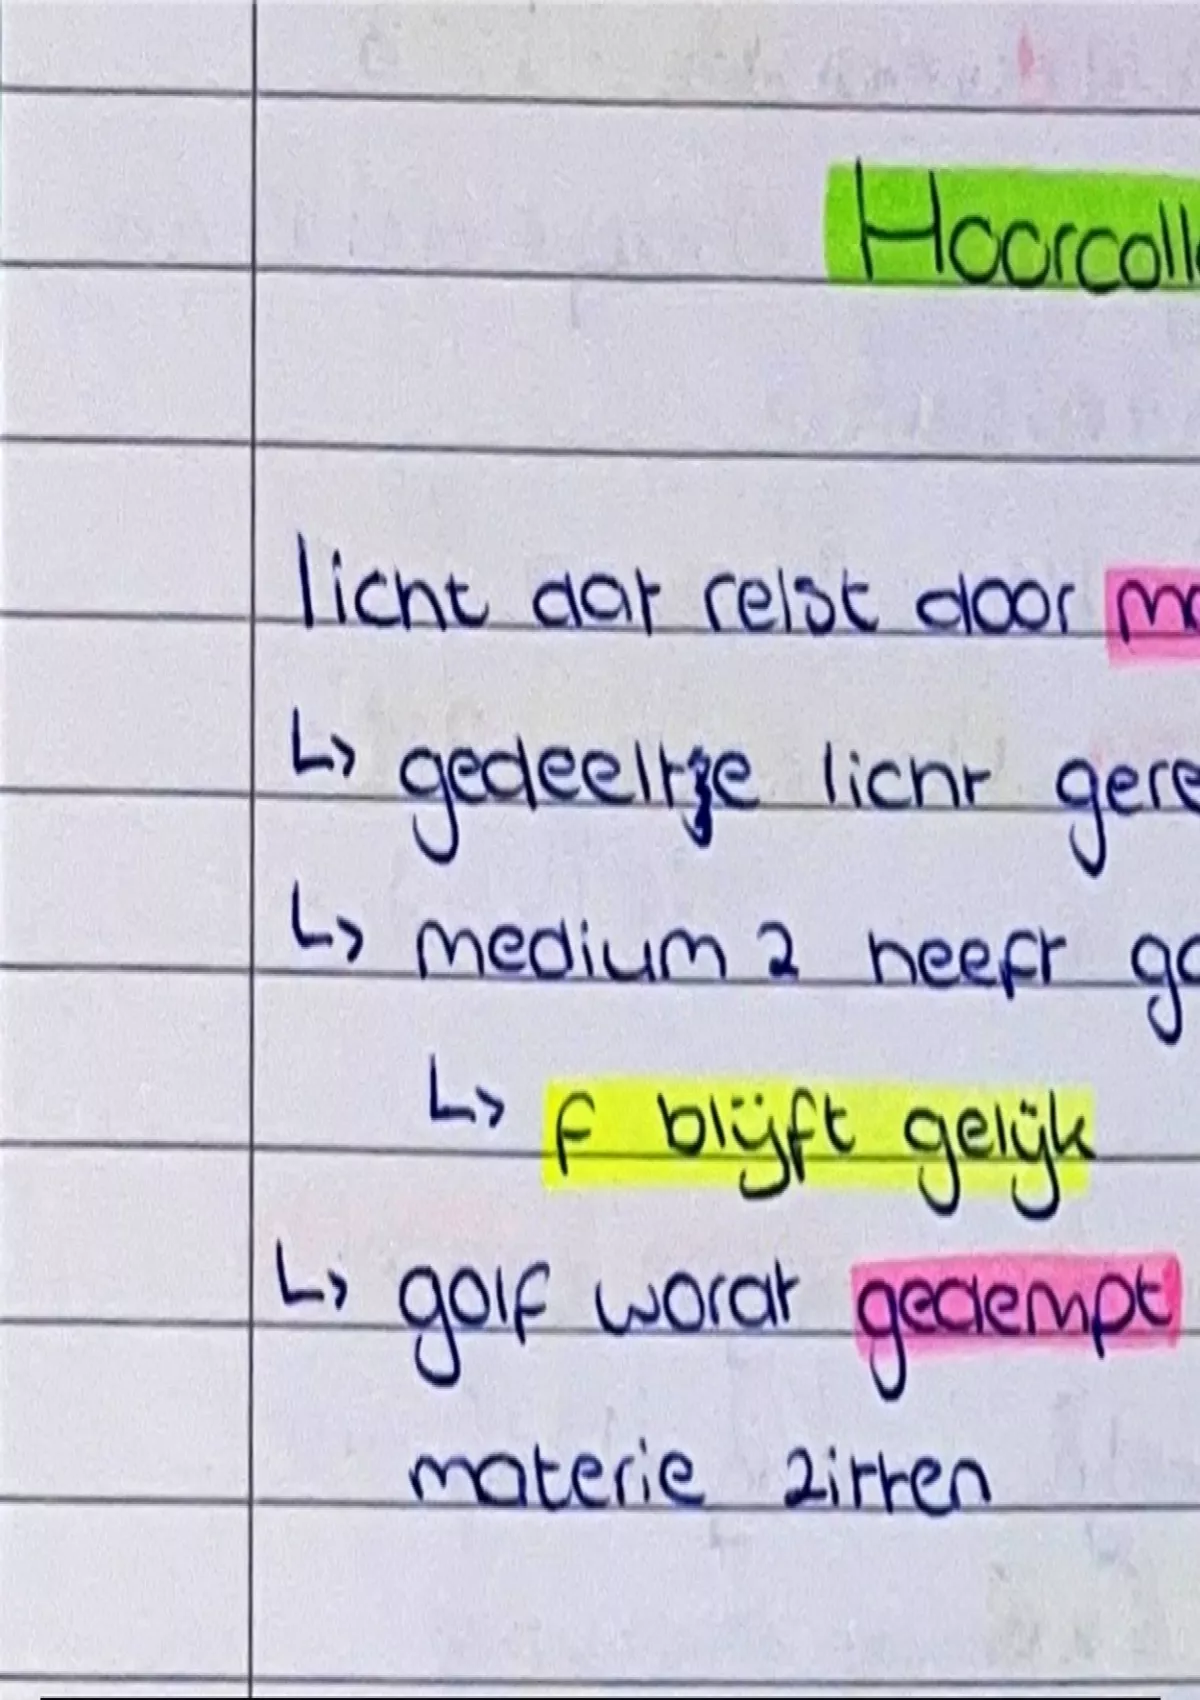 Hoorcoll
licht dat reist door ma
↳ gedeeltje licht gere
↳ medium 2 heeft go
↳ f blijft gelijk
↳ golf wordt gedempt
materie zitten